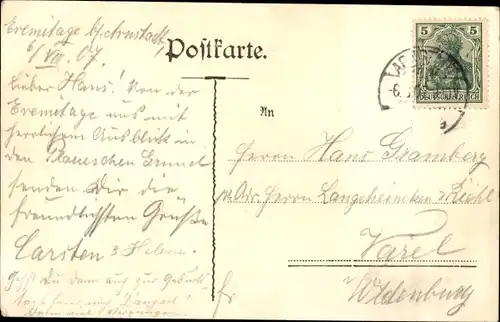 Eremitage b/Arnstadt,
6/VIII. 07.
Postkarte.
Lieber Hans! Von der
Eremitage aus mit
herrlichem Ausblick in
den Plaueschen Grund
senden Dir die
freundlichsten Grüße
Carsten & Helene.
Gehst Du denn auch zur Geburts-
5 5
DEUTSCHES REICH
An
Herrn Hans Gramberg
Adr. Herren Langeheineken & Riehl
Varel
Oldenburg